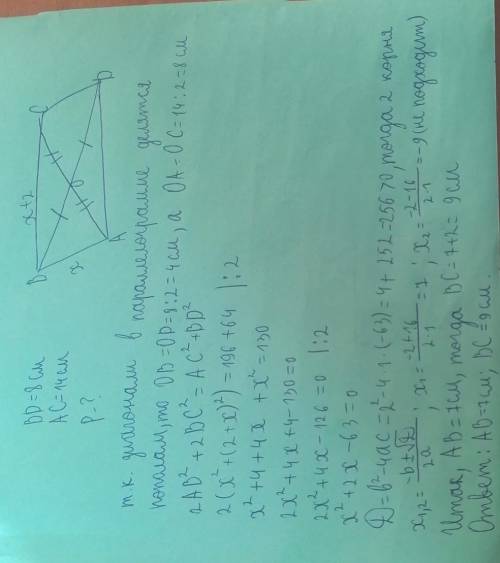 BD=8см
AC=14см
P-?
B
x+2
C
x
O
A
D
т.к. диагонали в параллелограмме делятся
пополам, то OB=OD=8:2=4см, а OA-OC=14:2=8см
2AB²+2BC²=AC²+BD²
2(x²+(2+x)²)=196+64 |:2
x²+4+4x+x²=130
2x²+4x+4-130=0
2x²+4x-126=0 |:2
x²+2x-63=0
D=b²-4ac=2²-4·1·(-63)=4+252=256>0, тогда 2 корня
x₁,₂=(-b±√D)/2a; x₁=(-2+16)/2·1=7; x₂=(-2-16)/2·1=-9 (не подходит)
Итак, AB=7см, тогда BC=7+2=9см
Ответ: AB=7см; BC=9см.